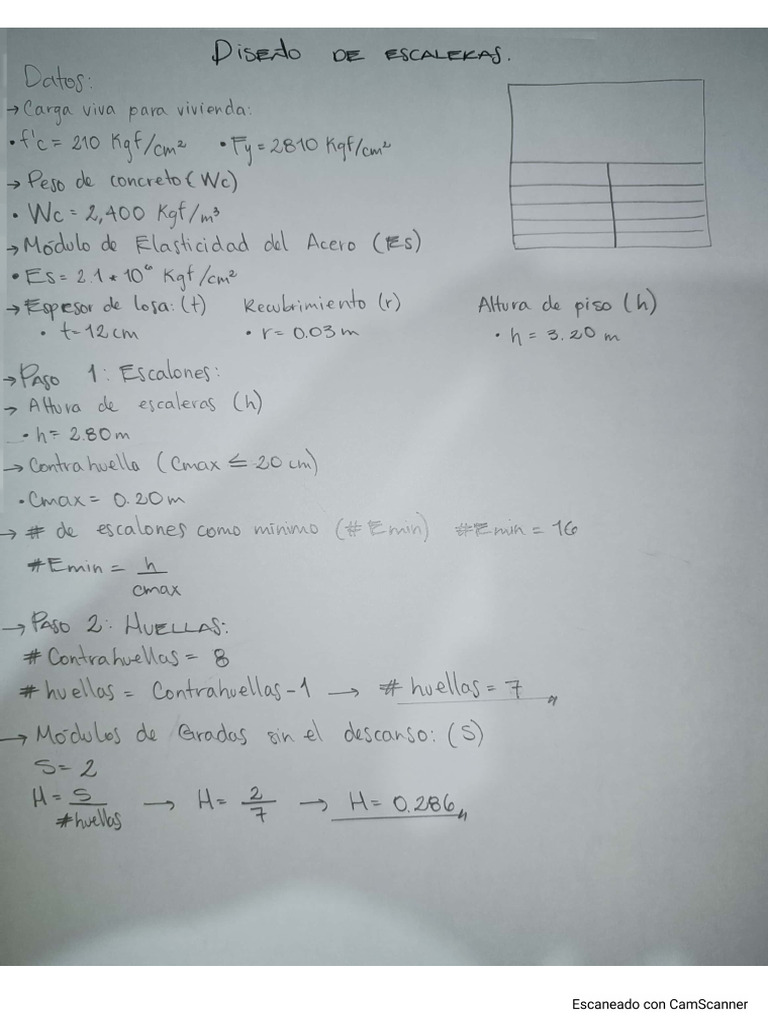 DISEÑO DE ESCALERAS.
Datos:
→ Carga viva para vivienda:
• f'c = 210 Kgf/cm² • Fy = 2810 Kgf/cm²
→ Peso de concreto (Wc)
• Wc = 2,400 Kgf/m³
→ Módulo de Elasticidad del Acero (Es)
• Es = 2.1 * 10⁶ Kgf/cm²
→ Espesor de losa: (t) Recubrimiento (r) Altura de piso (h)
• t = 12 cm • r = 0.03 m • h = 3.20 m
→ PASO 1: Escalones:
→ Altura de escaleras (h)
• h = 2.80 m
→ Contrahuella (Cmax ≤ 20 cm)
• Cmax = 0.20 m
→ # de escalones como mínimo (#Emin) #Emin = 16
#Emin = h/cmax
→ PASO 2: HUELLAS:
# Contrahuellas = 8
# huellas = Contrahuellas - 1 → # huellas = 7 „
→ Módulos de Gradas sin el descanso: (S)
S = 2
H = S/#huellas → H = 2/7 → H = 0.286 „
Escaneado con CamScanner